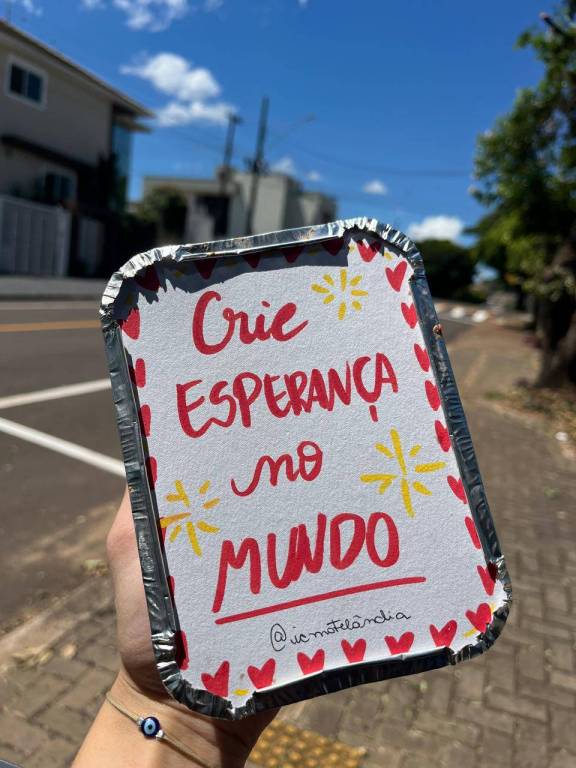 Crie
ESPERANÇA
no
MUNDO
@icmotelândia